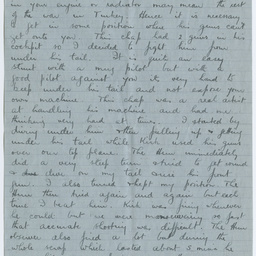 in your engine or radiator may mean the rest
of the war in Turkey. Hence it is necessary
to get in some position where his guns can't
get onto you. This chap had 2 guns in his
cockpit so I decided to fight him from
under his tail. It is quite an easy
stunt with a mug pilot but with a
good pilot against you it is very hard to
keep under his tail and not expose your
own machine. This chap was a real artist
at handling his machine and had me
thinking very hard at times. I started by
diving under him & then pulling up & getting
under his tail while Kirk used his guns
over our top plane. The Hun immediately
did a very steep turn & tried to get round
& draw clear on my tail cause his front
gun. I also turned & kept my position. The
Hun then tried again and again but each
time I beat him. Kirk was firing whenever
he could but we were manoeuvring so fast
that accurate shooting was difficult. The Hun
observer also fired a lot but during the
whole scrap which lasted about 5 mins he